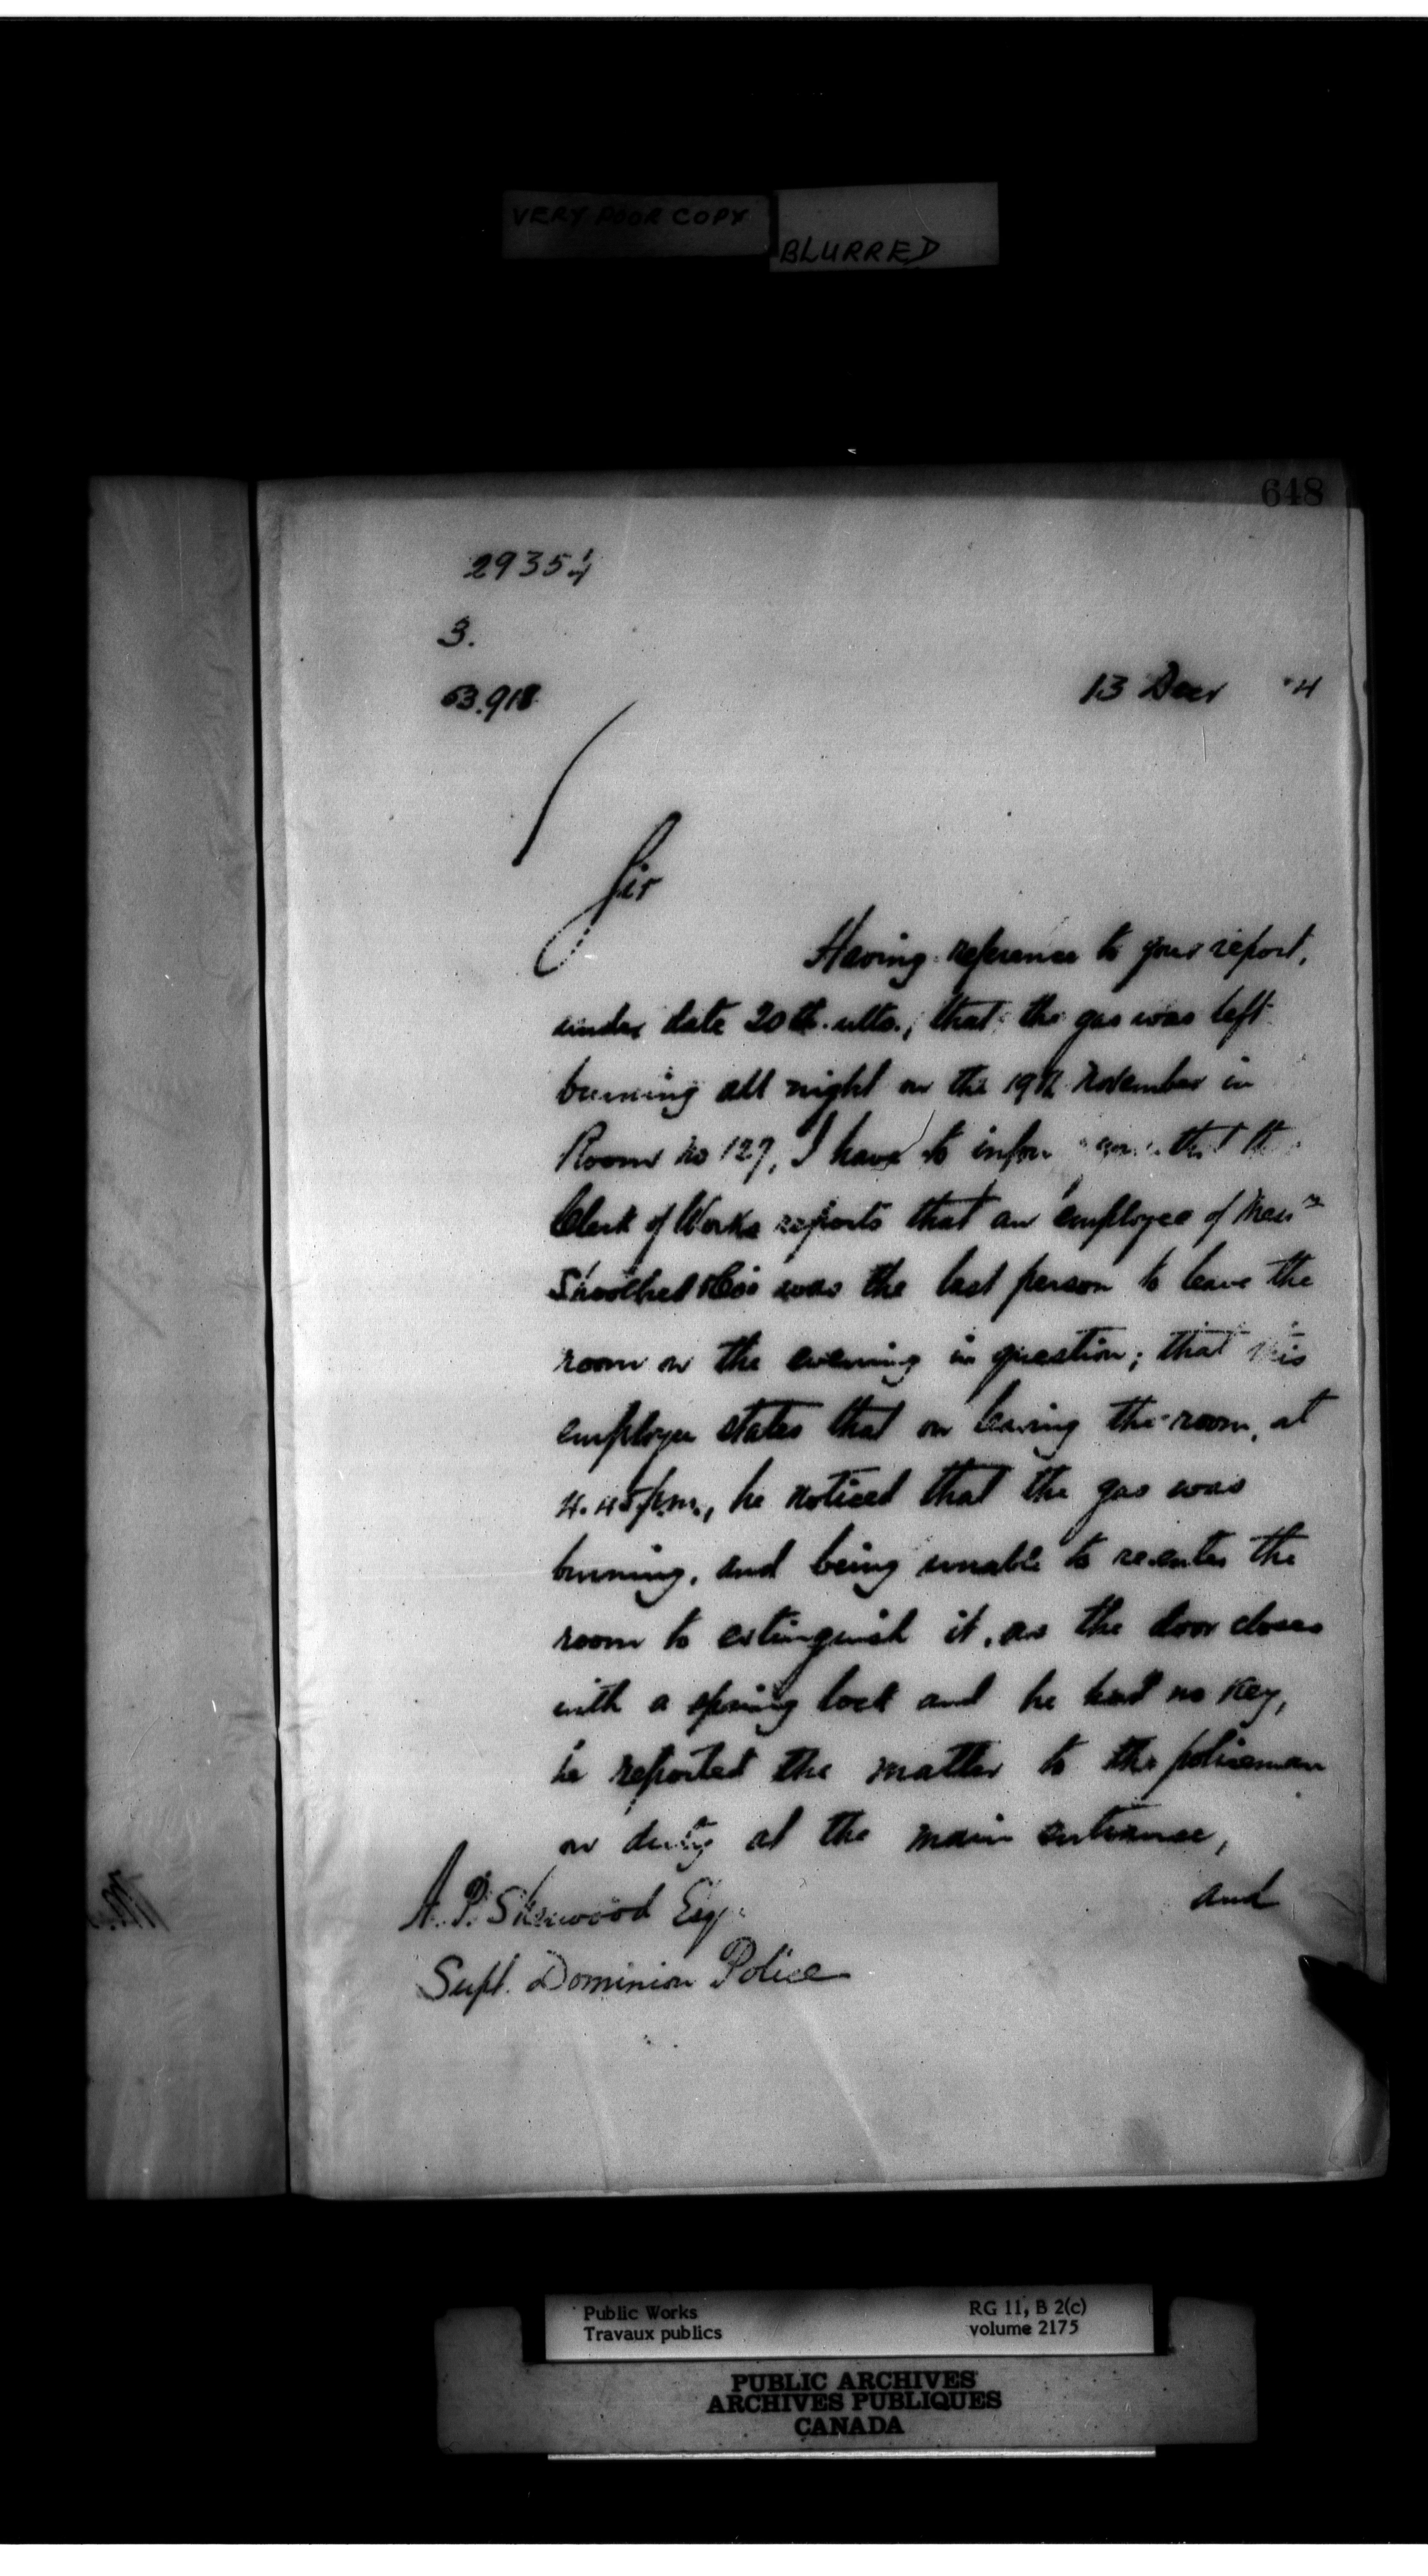 VERY POOR COPY
BLURRED
648
29354
3.
53.918
13 Decr 4
Sir
Having reference to your report,
under date 20th ulto., that the gas was left
burning all night on the 19th November in
Room No 127, I have to inform you that the
Clerk of Works reports that an employee of Messrs
& Co was the last person to leave the
room on the evening in question; that this
employee states that on leaving the room, at
4.45 p.m., he noticed that the gas was
burning, and being unable to re-enter the
room to extinguish it, as the door closes
with a spring lock and he had no key,
he reported the matter to the policeman
on duty at the main entrance,
and
A. P. Sherwood Esq.
Supt. Dominion Police
Public Works
Travaux publics
RG 11, B 2(c)
volume 2175
PUBLIC ARCHIVES
ARCHIVES PUBLIQUES
CANADA